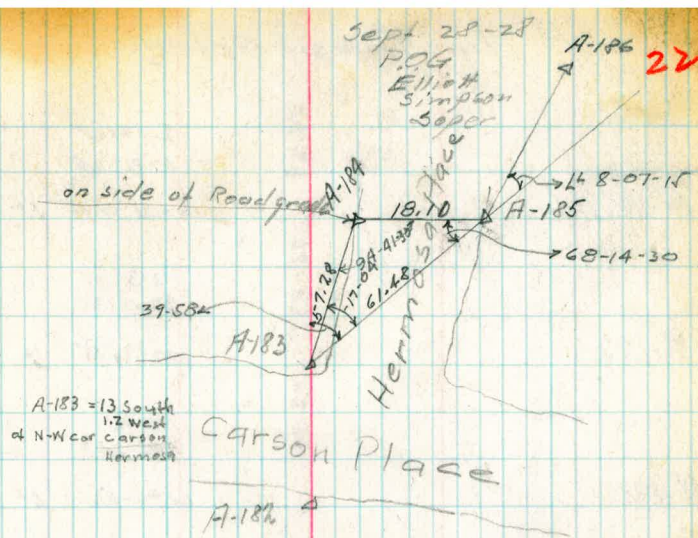 Sept 28-28
P.O.G
Elliott
Simpson
Soper
22
A-186
A-184
on side of Roadgrade
18.10
A-185
L 8-07-15
68-14-30
Hermosa Place
57.28
94-41-30
-17-04
61.48
39.58L
A-183
A-183 = 13 South
1.2 West
of N-W cor Carson
Hermosa
Carson Place
A-182